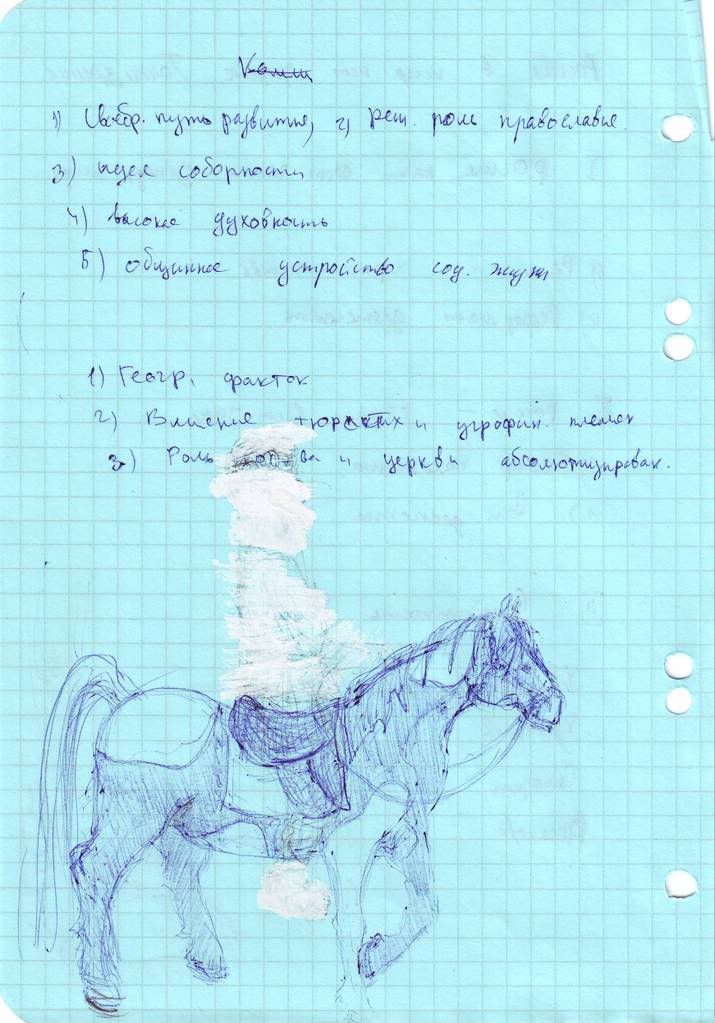 1) Своебр. путь развития, 2) Реш. роль православия.
3) идея соборности
4) высокая духовность
5) общинное устройство соц. жизни
1) Геогр. фактор
2) Влияние тюркских и угрофин. племен
3) Роль гос-ва и церкви абсолютизирован.